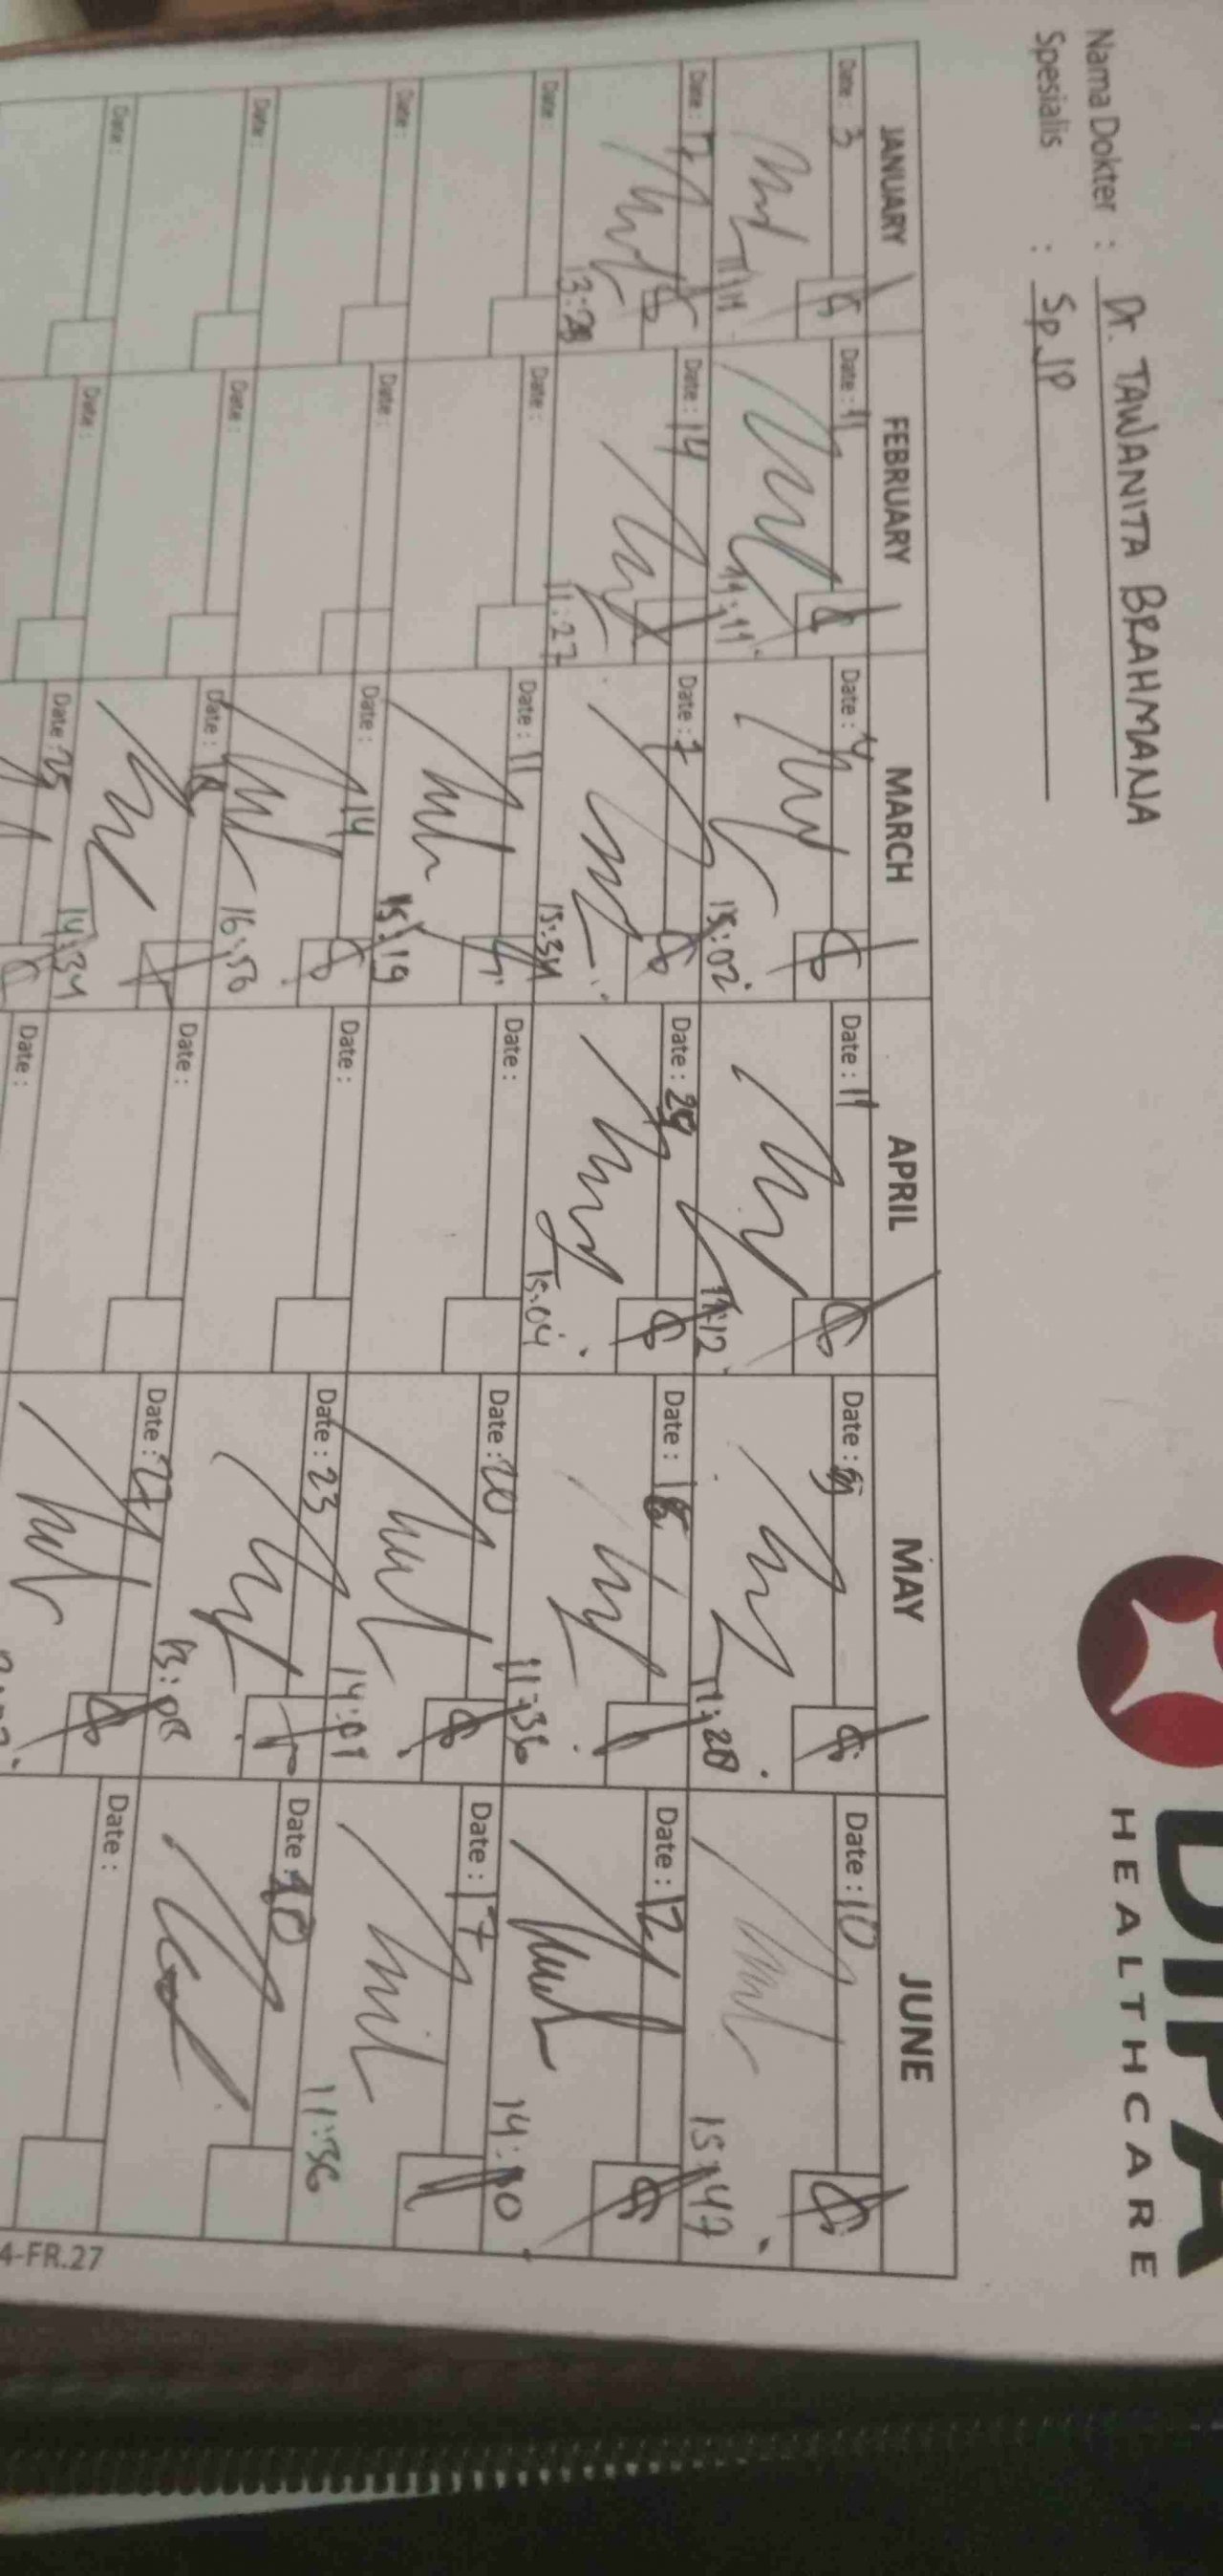 DIPA
HEALTHCARE
Nama Dokter : Dr. TAWANITA BRAHMANA
Spesialis : Sp.JP
JANUARY FEBRUARY MARCH APRIL MAY JUNE
Date : 3 Date : 11 Date : 4 Date : 11 Date : Date : 10
11:11 14:11 15:02 11:12 11:28 15:47
Date : 17 Date : 14 Date : 7 Date : 29 Date : Date : 12
13:28 11:27 15:34 15:04 11:36 14:10
Date : Date : Date : 11 Date : Date : 20 Date : 17
15:19 14:01 11:36
Date : Date : Date : 14 Date : Date : 23 Date :
16:56 13:08
Date : Date : Date : 18 Date : Date : 27 Date :
14:34
Date : Date : Date : 25 Date :
4-FR.27